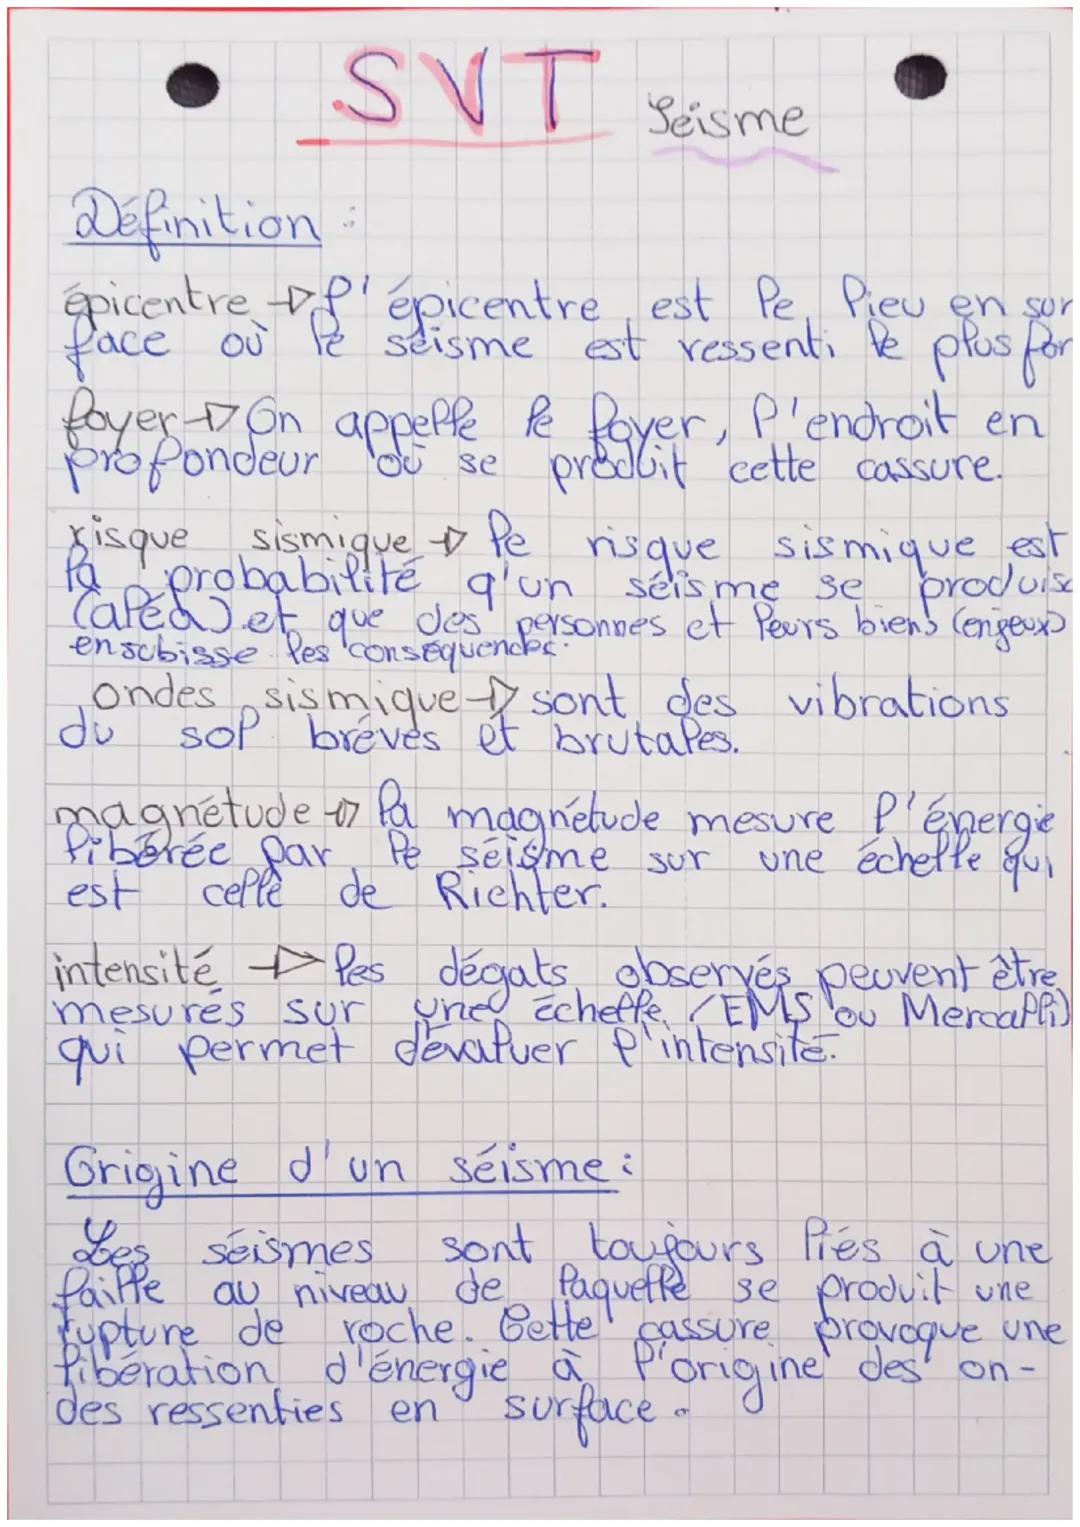 SVT
Séisme
Définition :
épicentre → l'épicentre est le lieu en sur
face où le séisme est ressenti le plus for
foyer → On appelle le foyer, l'endroit en
profondeur où se produit cette cassure.
risque sismique → le risque sismique est
la probabilité q'un séisme se produise
(aléa) et que des personnes et leurs biens (enjeux)
en subisse les conséquences.
ondes sismique → sont des vibrations
du sol brèves et brutales.
magnétude → la magnétude mesure l'énergie
libérée par le séisme sur une échelle qui
est celle de Richter.
intensité → les dégats observés peuvent être
mesurés sur une échelle (EMS ou Mercalli)
qui permet dévaluer l'intensité.
Origine d'un séisme :
Les séismes sont toujours liés à une
faille au niveau de laquelle se produit une
rupture de roche. Cette cassure provoque une
libération d'énergie à l'origine des on-
des ressenties en surface.